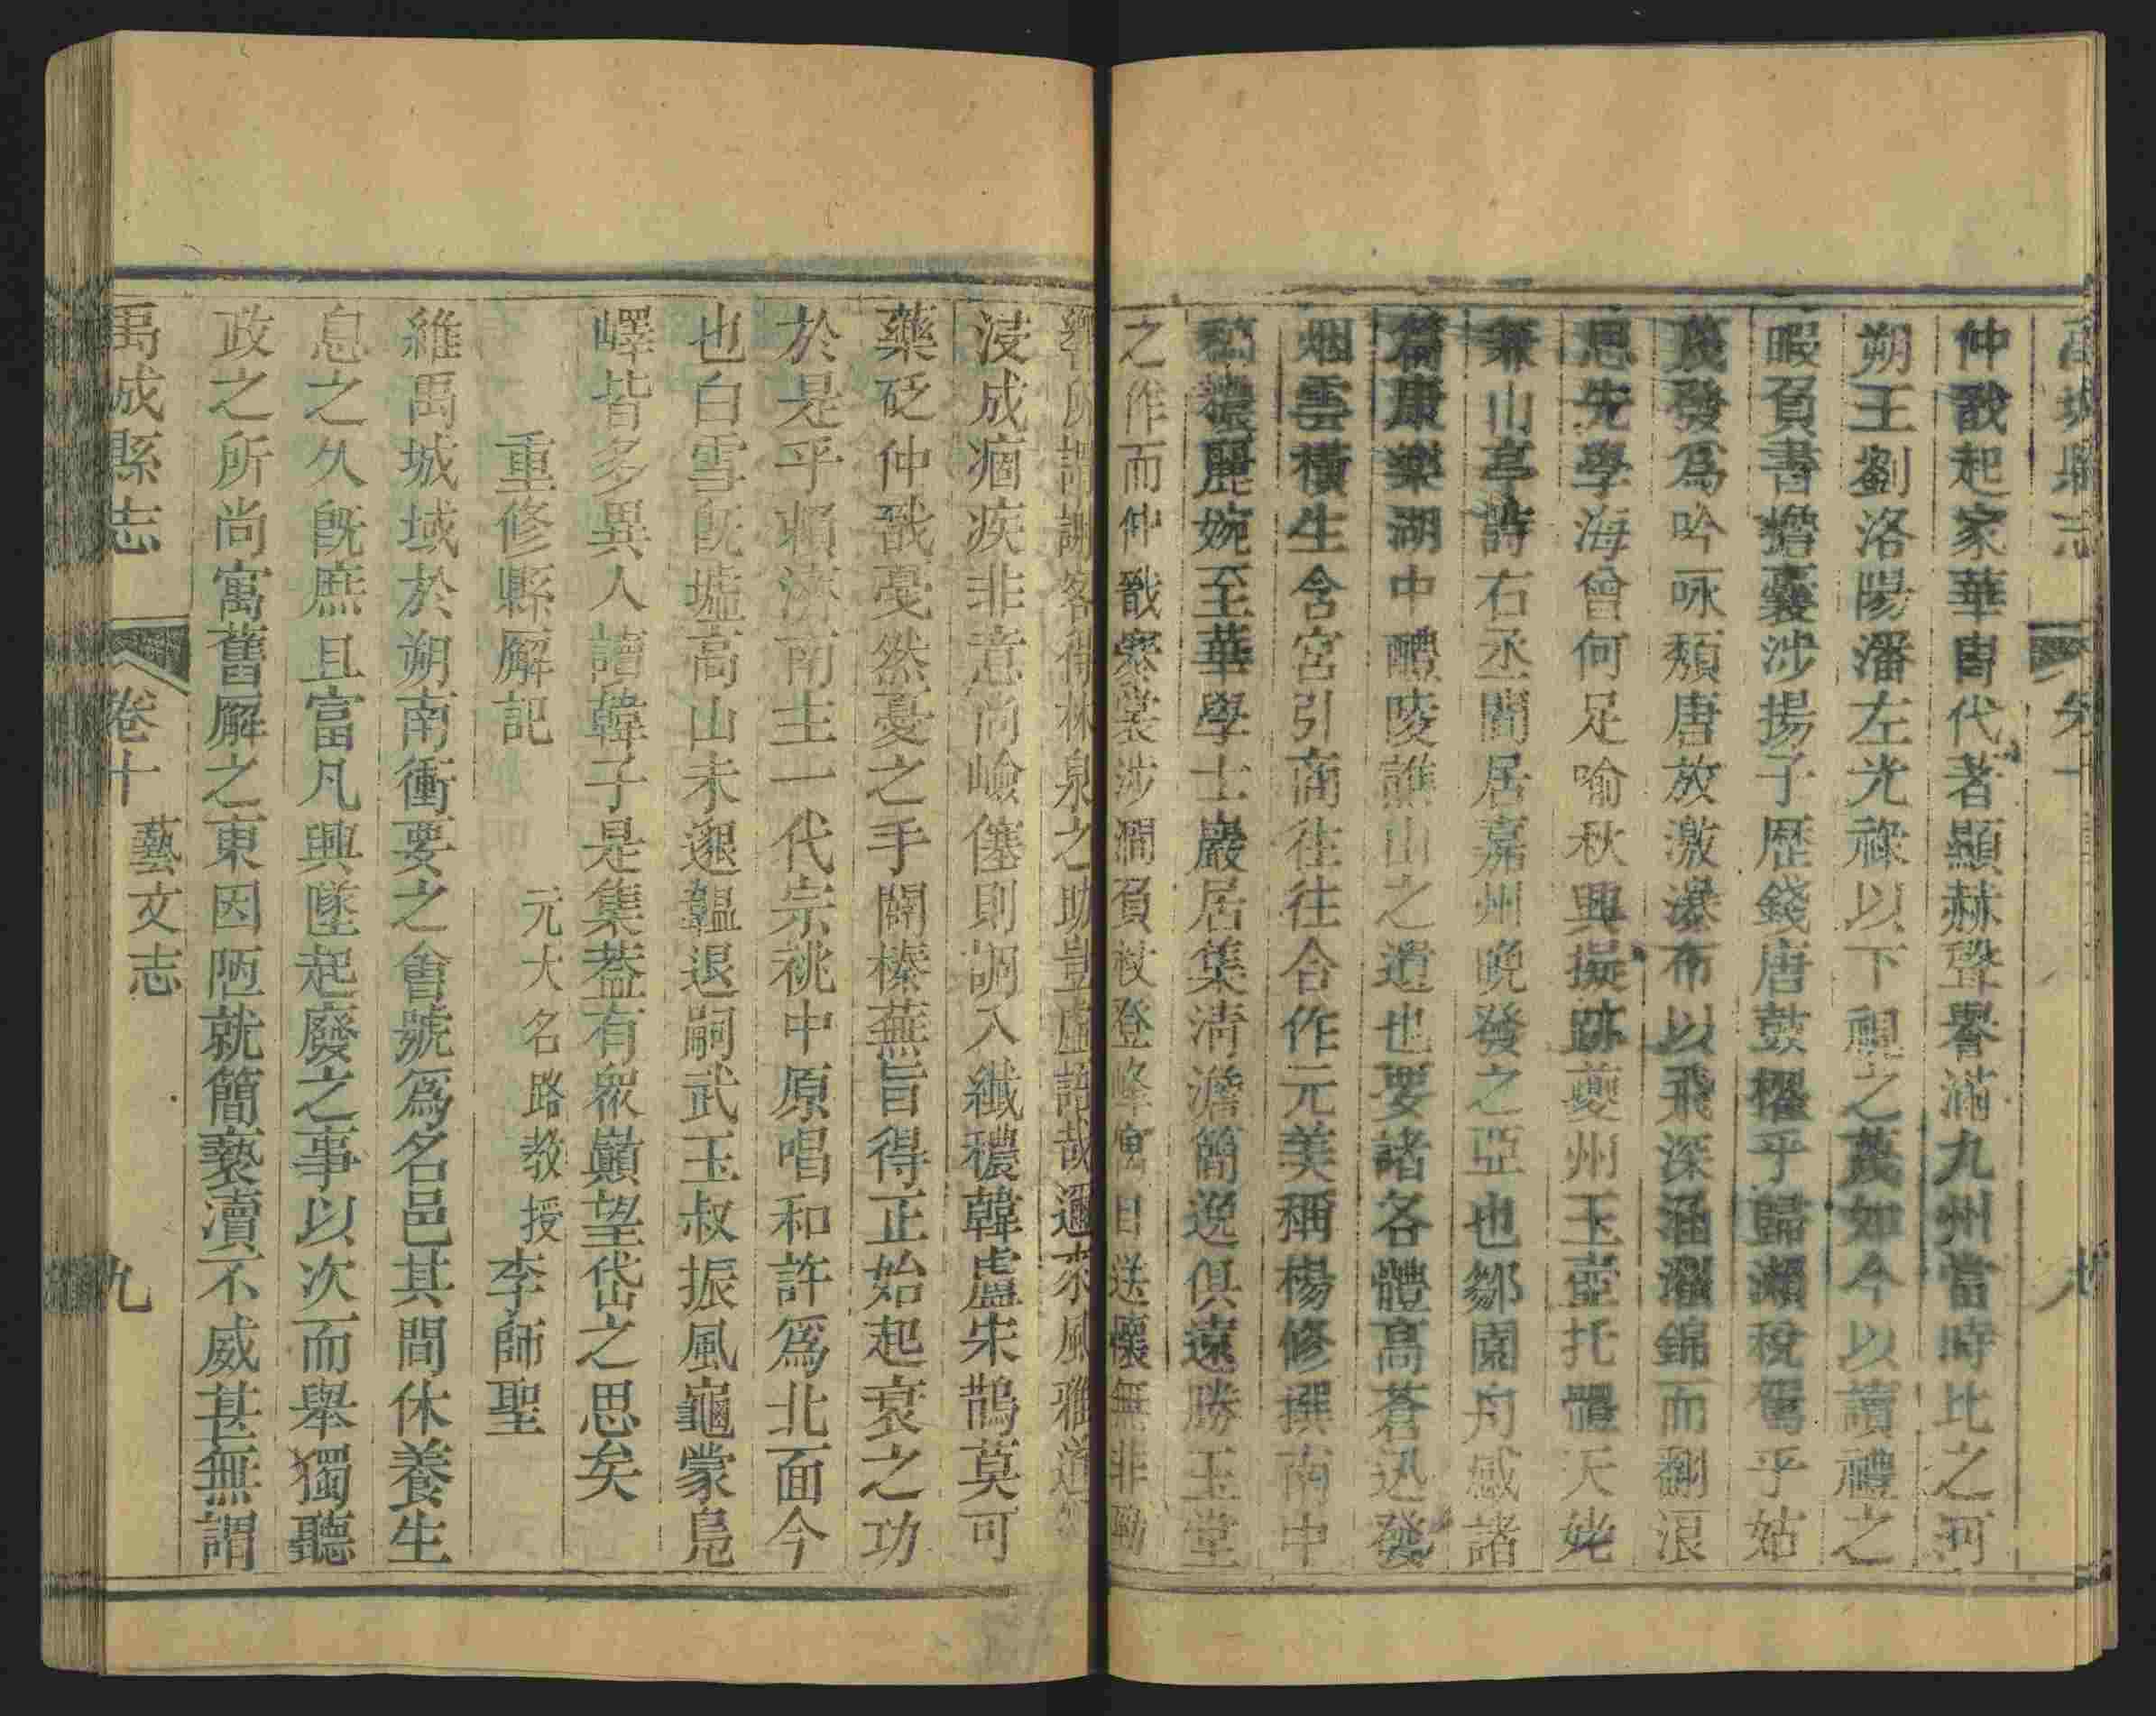 禹城縣志 卷十
仲戩起家華胄代著顯赫聲譽滿九州當時比之河
朔王劉洛陽潘左光祿以下視之蔑如今以讀禮之
暇負書擔囊涉揚子歷錢唐鼓櫂乎歸瀨稅駕乎姑
蔑發爲吟咏頹唐放激瀑布以飛深涵濯錦而翻浪
思先學海曾何足喻秋興擬跡夔州玉壺托體天姥
兼山亭詩右丞閒居嘉州晚發之亞也鄒園舟感諸
篇康樂湖中醴陵譙山之遺也要諸各體高蒼迅發
烟雲橫生含宮引商往往合作元美稱楊修撰南中
稿穠麗婉至華學士巖居集清澹簡逸俱遠勝玉堂
之作而仲戩褰裳涉澗負杖登峰寓目送懷無非勛
泉之助豈虛語哉邇來風雅道
浸成痼疾非意尚嶮僿則調入纖穠韓盧宋鵲莫可
藥砭仲戩戞然憂之手闢榛蕪旨得正始起衰之功
於是乎賴濟南主一代宗祧中原唱和許爲北面今
也白雪旣墟高山未邈韞退嗣武玉叔振風龜蒙鳧
嶧皆多異人讀韓子是集葢有衆巔望岱之思矣
重修縣廨記 元大名路教授李師聖
維禹城域於朔南衝要之會號爲名邑其間休養生
息之久旣庶且富凡興墜起廢之事以次而舉獨聽
政之所尚寓舊廨之東因陋就簡褻瀆不威甚無謂
禹城縣志 卷十 藝文志 九